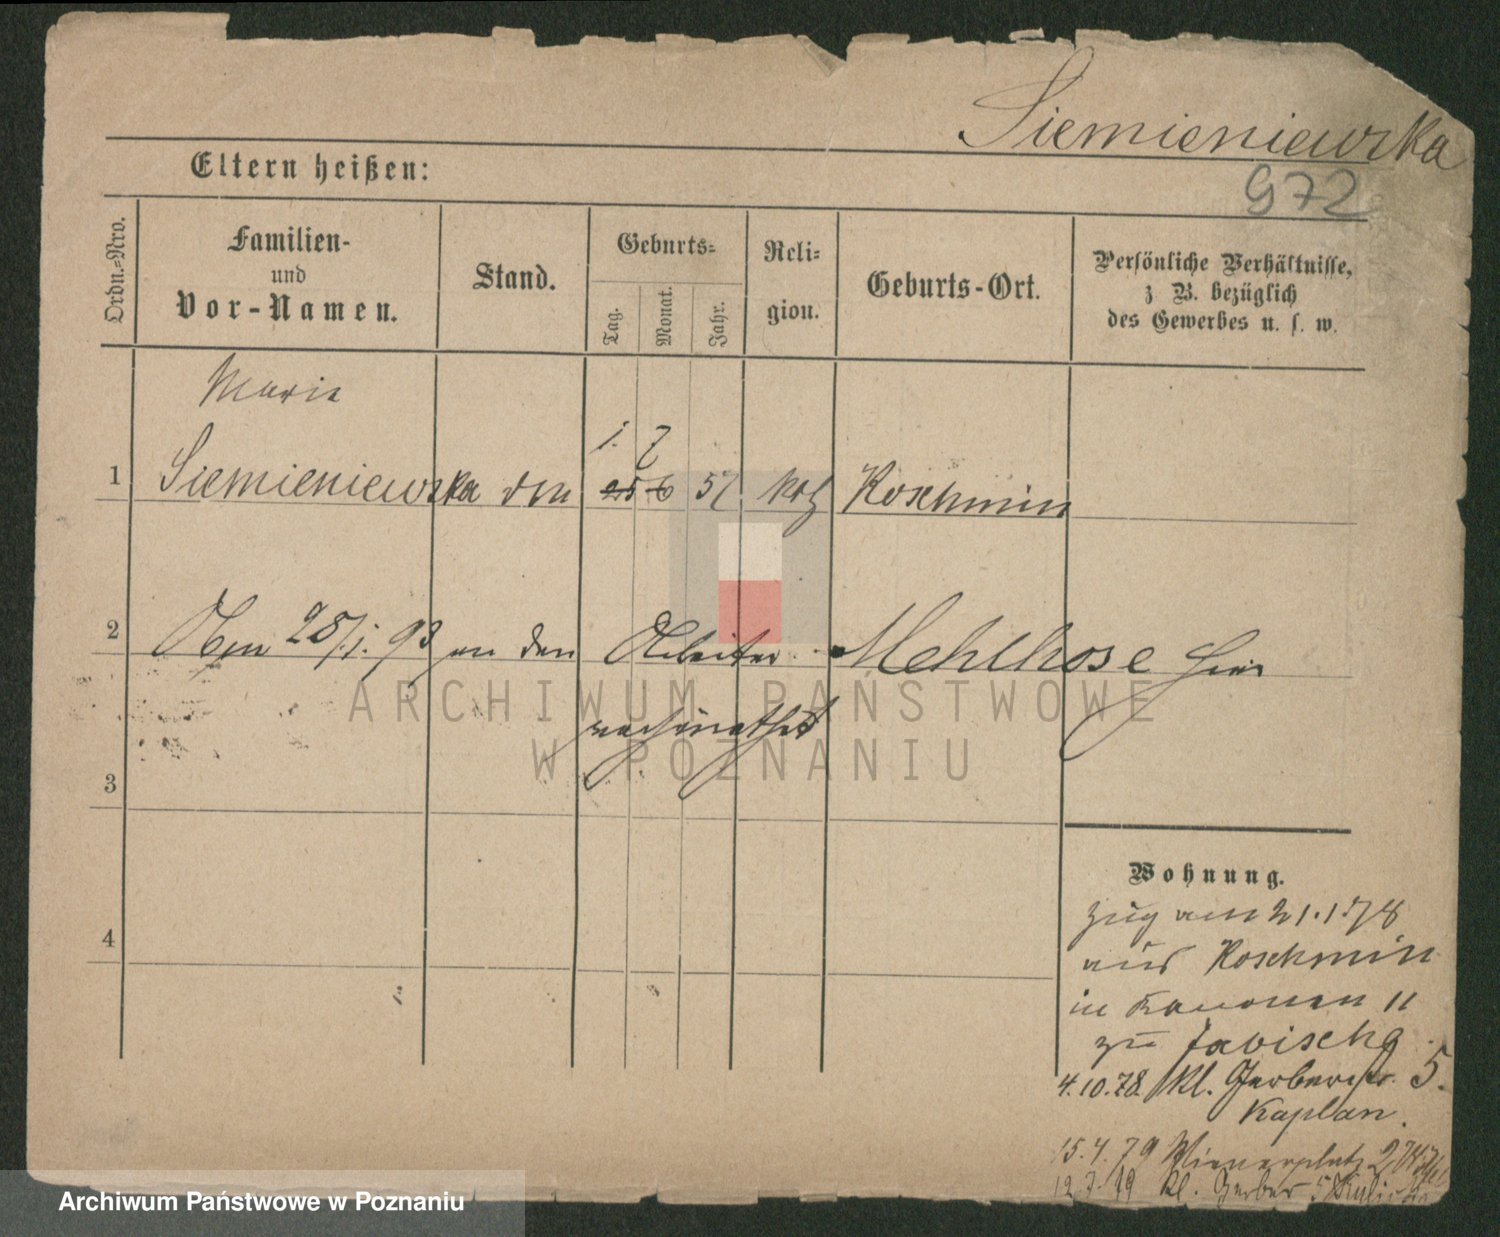 Siemieniewska
972
Eltern heißen:
Ordn.-Nro.
Familien-
und
Vor-Namen.
Stand.
Geburts-
Tag.
Monat.
Jahr.
Reli-
gion.
Geburts-Ort.
Persönliche Verhältnisse,
z B. bezüglich
des Gewerbes u. s. w.
Marie
1. 7
1 Siemieniewska den 25 6 57 kath Koschmin
2 Am 28/1. 93 an den Arbeiter Mehlhose hier
verheirathet
3
4
ARCHIWUM PAŃSTWOWE
W POZNANIU
Wohnung.
Zug am 21.1.78
aus Koschmin
in Kanonen 11
zu
4.10.78 kl. Gerberstr. 5.
Kaplan.
15.4.79 Wienerplatz 2
12.7.79 kl. Gerber 5
Archiwum Państwowe w Poznaniu